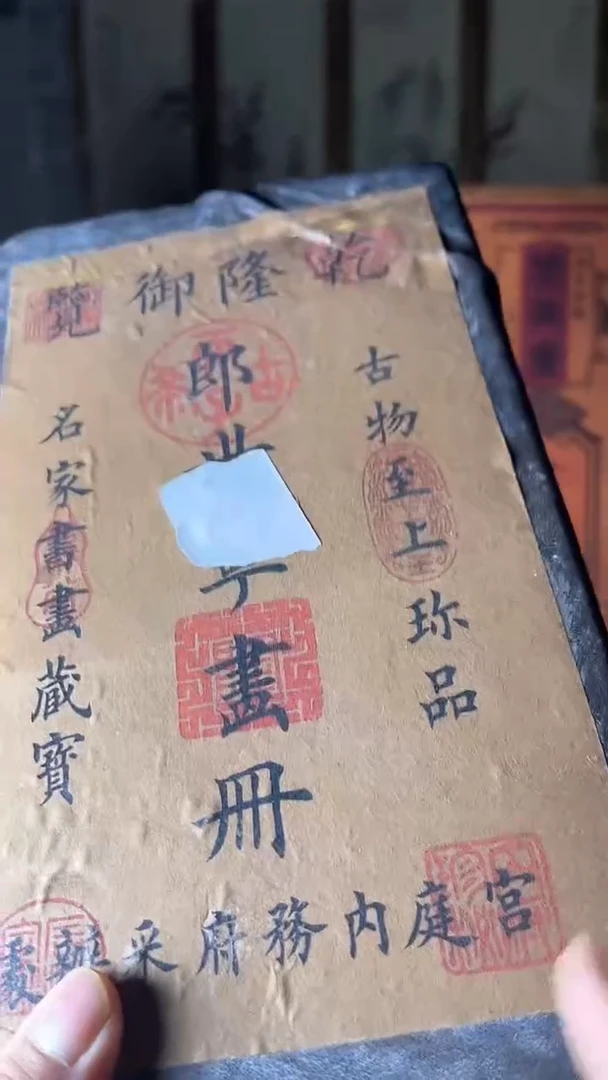 乾隆御覽
古物至上珎品
郎
畫冊
名家書畫藏寶
宮庭內務府采辦處